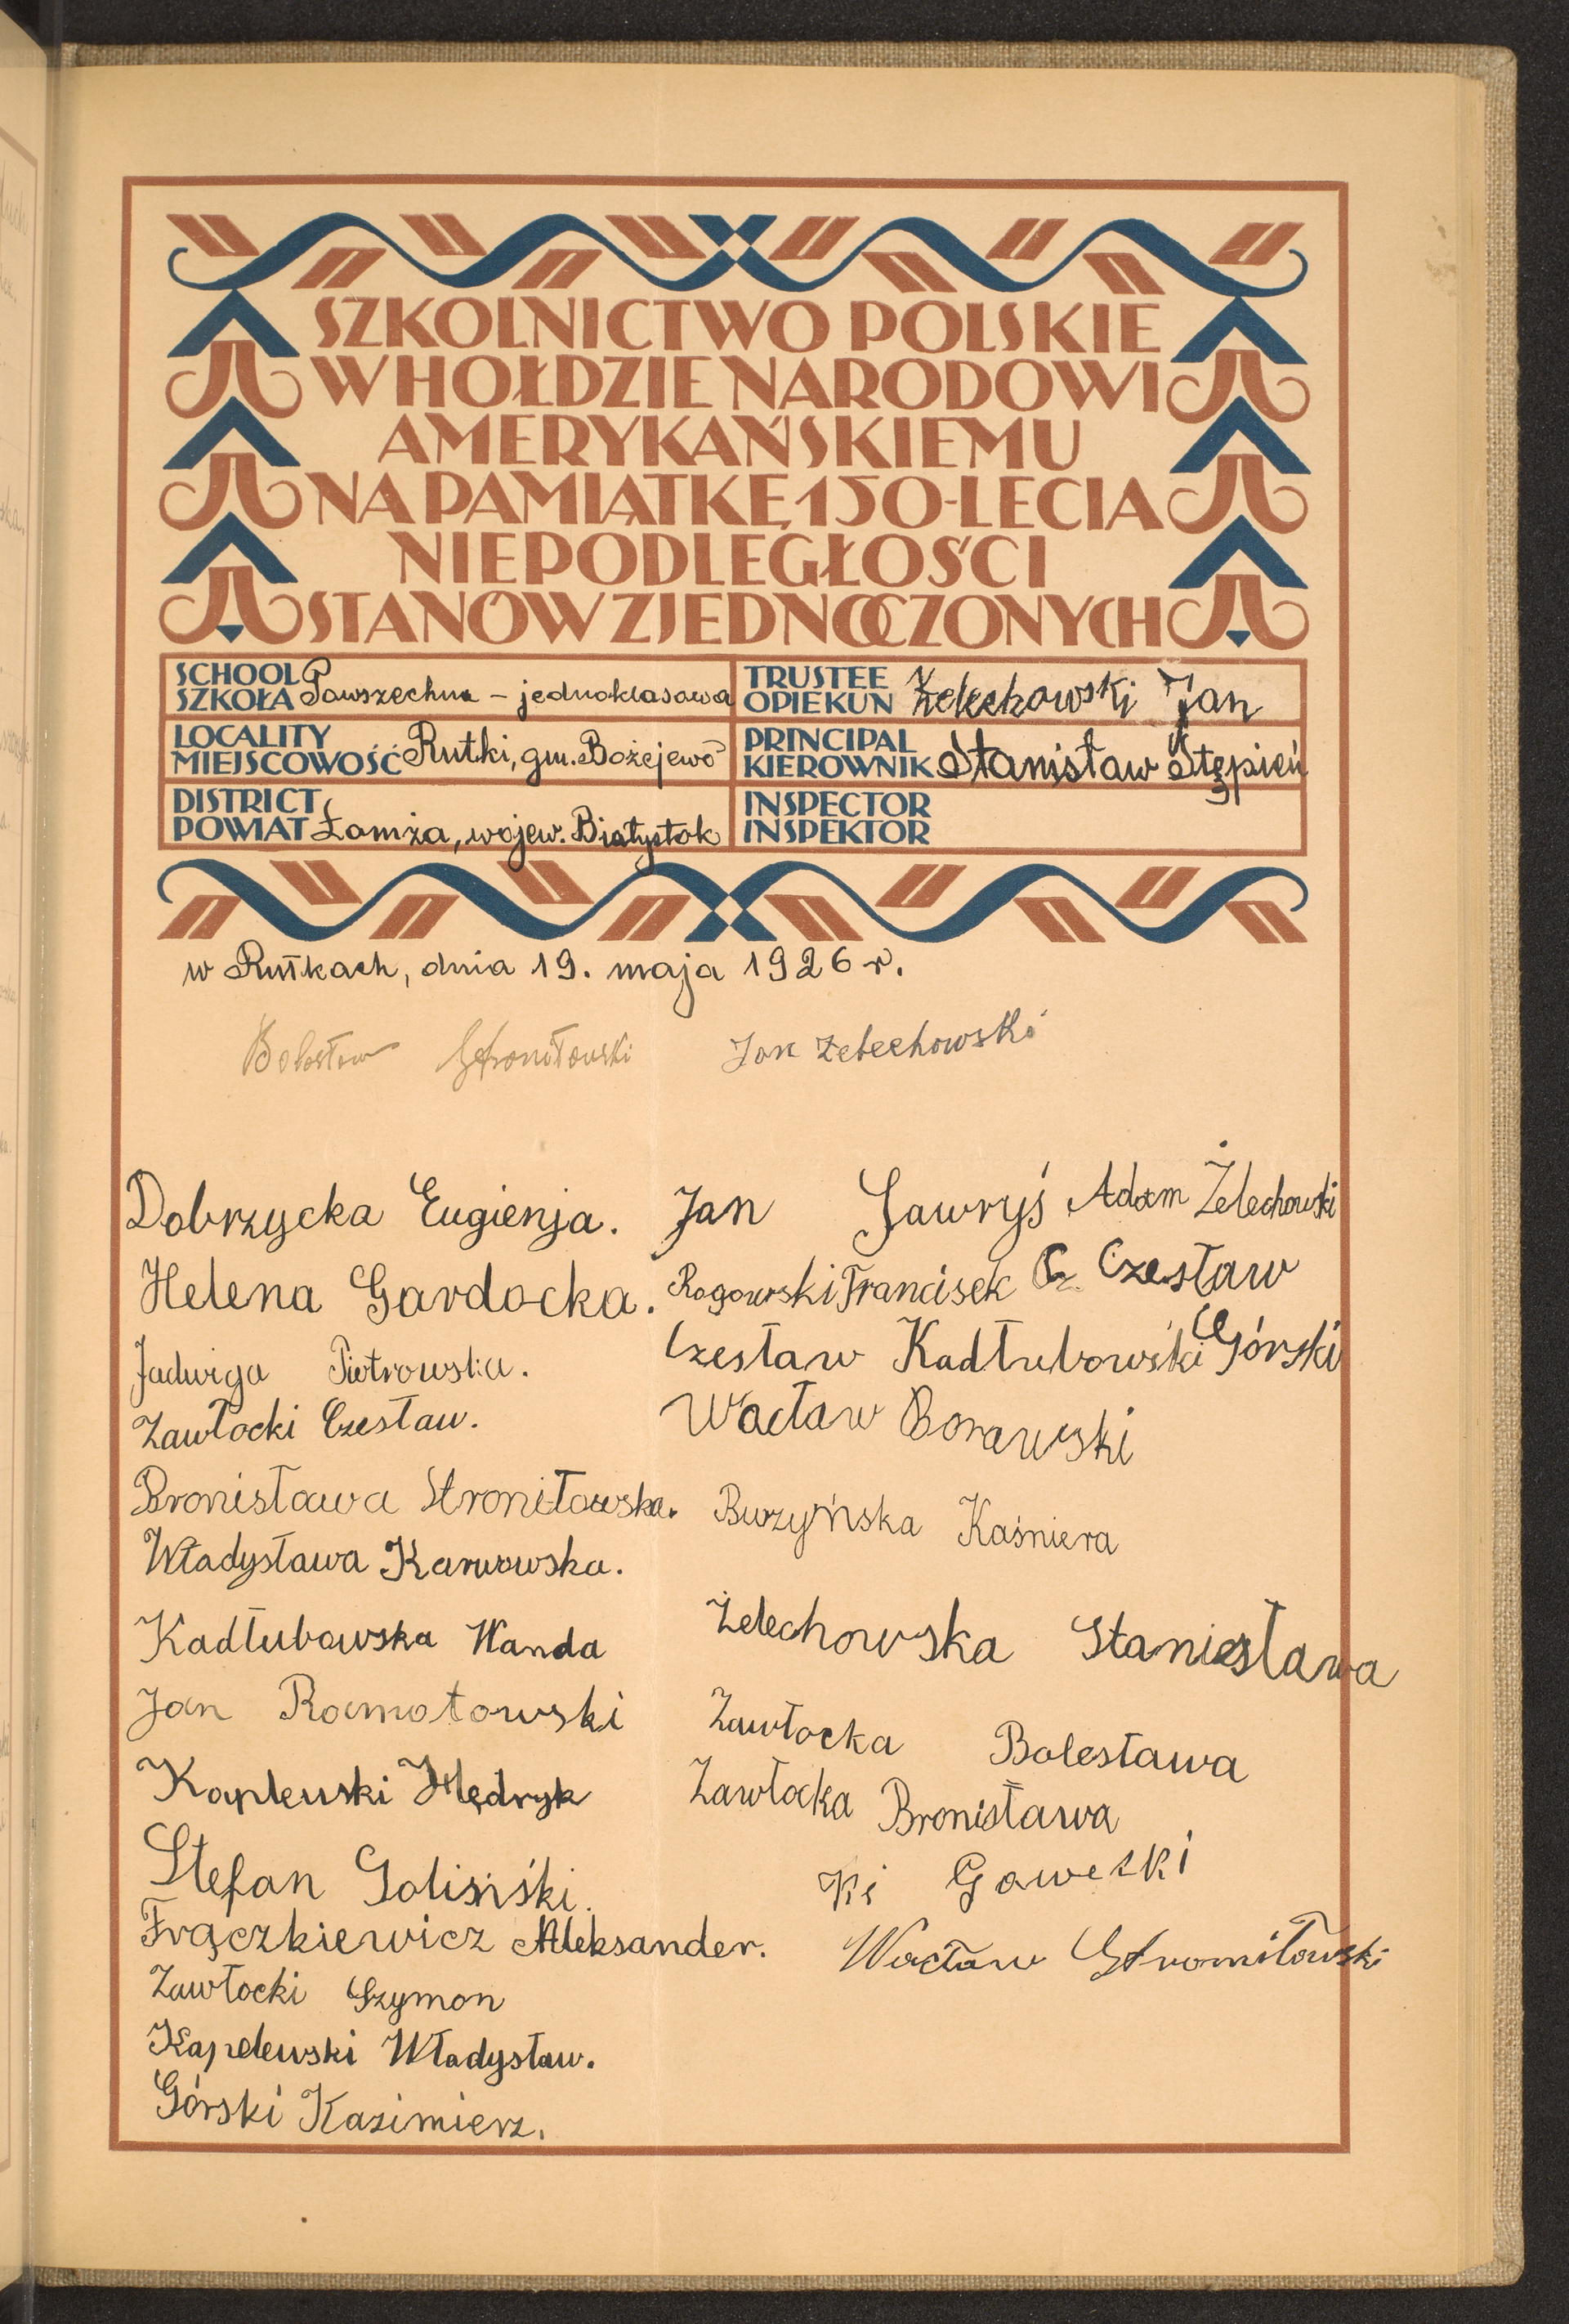 SZKOLNICTWO POLSKIE
W HOŁDZIE NARODOWI
AMERYKAŃSKIEMU
NA PAMIĄTKĘ 150-LECIA
NIEPODLEGŁOŚCI
STANÓW ZJEDNOCZONYCH
SCHOOL
SZKOŁA Powszechna – jednoklasowa
TRUSTEE
OPIEKUN Żelechowski Jan
LOCALITY
MIEJSCOWOŚĆ Rutki, gm. Bożejewo
PRINCIPAL
KIEROWNIK Stanisław Stępień
DISTRICT
POWIAT Łomża, wojew. Białystok
INSPECTOR
INSPEKTOR
w Rutkach, dnia 19. maja 1926 r.
Bolesław Jan Żelechowski
Dobrzycka Eugienja.
Helena Gardocka.
Jadwiga Piotrowska.
Zawłocki Czesław.
Bronisława Stroniłowska.
Władysława Karwowska.
Kadłubowska Wanda
Jan Ramotowski
Kaplewski Hędryk
Stefan Golisiński.
Frączkiewicz Aleksander.
Zawłocki Szymon
Kapelewski Władysław.
Górski Kazimierz.
Jan Gawryś
Adam Żelechowski
Rogowski Francisek
Cz. Czesław
Górski
Czesław Kadłubowski
Wacław Borawski
Burzyńska Kaśniera
Żelechowska Staniesława
Zawłocka Bolesława
Zawłocka Bronisława
Ki Gaweski
Wacław Stromiłowski